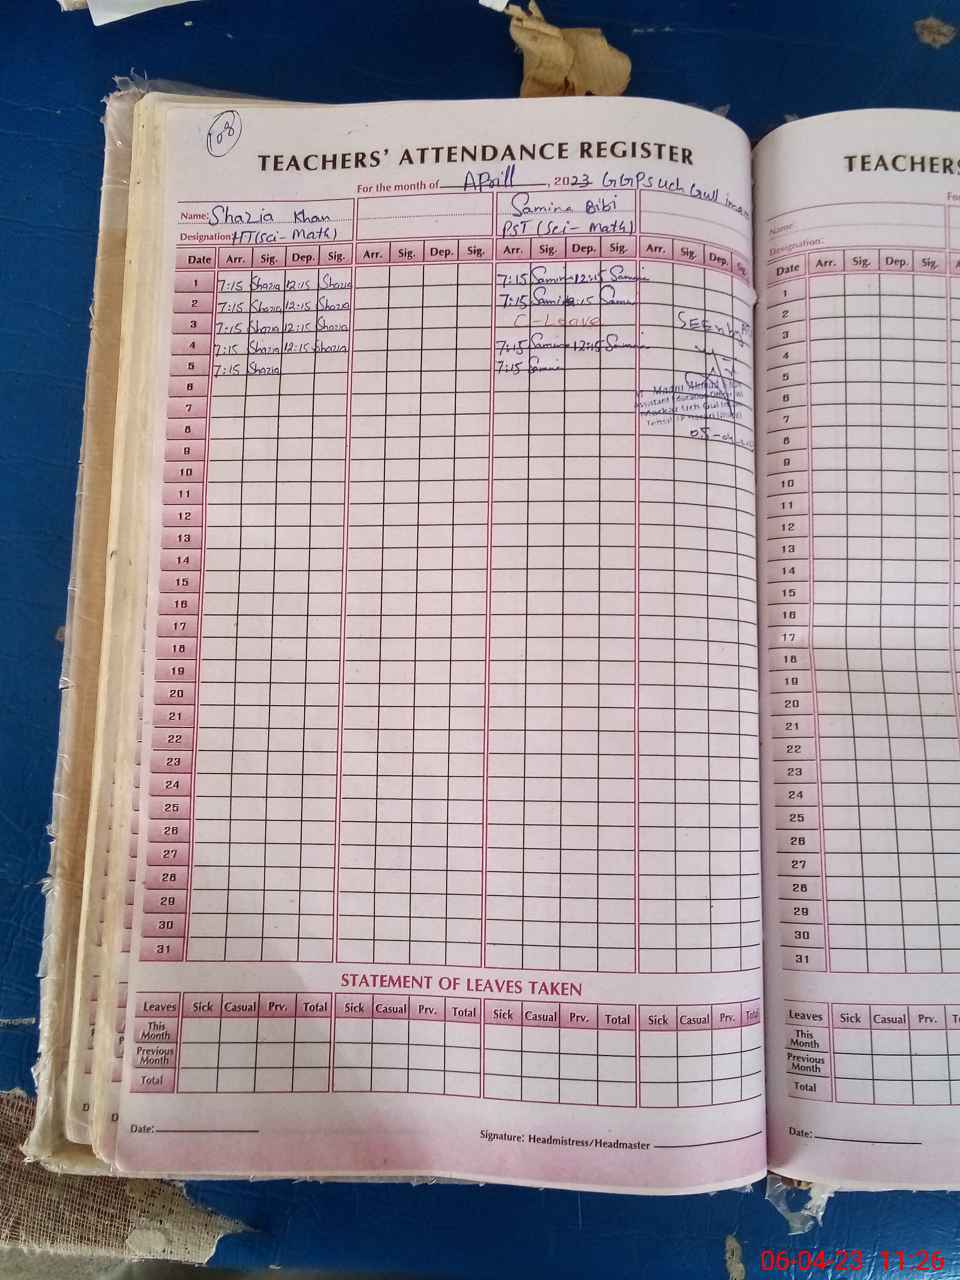 108
TEACHERS' ATTENDANCE REGISTER
For the month of Aprill, 2023 GGPS uch Gull imam
Name: Shazia Khan Samina Bibi
Designation: HT(Sci-Math) PST (Sci-Math)
Date Arr. Sig. Dep. Sig. Arr. Sig. Dep. Sig. Arr. Sig. Dep. Sig. Arr. Sig. Dep. Sig.
1 7:15 Shazia 12:15 Shazia 7:15 Samina 12:15 Samina
2 7:15 Shazia 12:15 Shazia 7:15 Samina 12:15 Samina
3 7:15 Shazia 12:15 Shazia C-Leave SEEN by
4 7:15 Shazia 12:15 Shazia 7:15 Samina 12:15 Samina
5 7:15 Shazia 7:15 Samina
6
7 Assistant Education Officer
8 Markaz Uch Gul Imam
9 05-04-
10
11
12
13
14
15
16
17
18
19
20
21
22
23
24
25
26
27
28
29
30
31
STATEMENT OF LEAVES TAKEN
Leaves Sick Casual Prv. Total Sick Casual Prv. Total Sick Casual Prv. Total Sick Casual Prv. Total
This Month
Previous Month
Total
Date:
Signature: Headmistress/Headmaster
TEACHERS
Fo
Name:
Designation:
Date Arr. Sig. Dep. Sig. A
1
2
3
4
5
6
7
8
9
10
11
12
13
14
15
16
17
18
19
20
21
22
23
24
25
26
27
28
29
30
31
Leaves Sick Casual Prv. To
This Month
Previous Month
Total
Date:
06-04-23 11:26